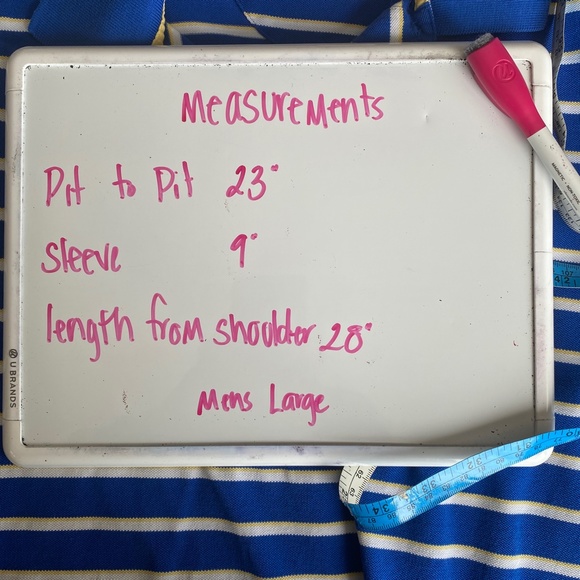 Measurements
Pit to Pit 23"
Sleeve 9"
length from shoulder 28"
Mens Large
U BRANDS